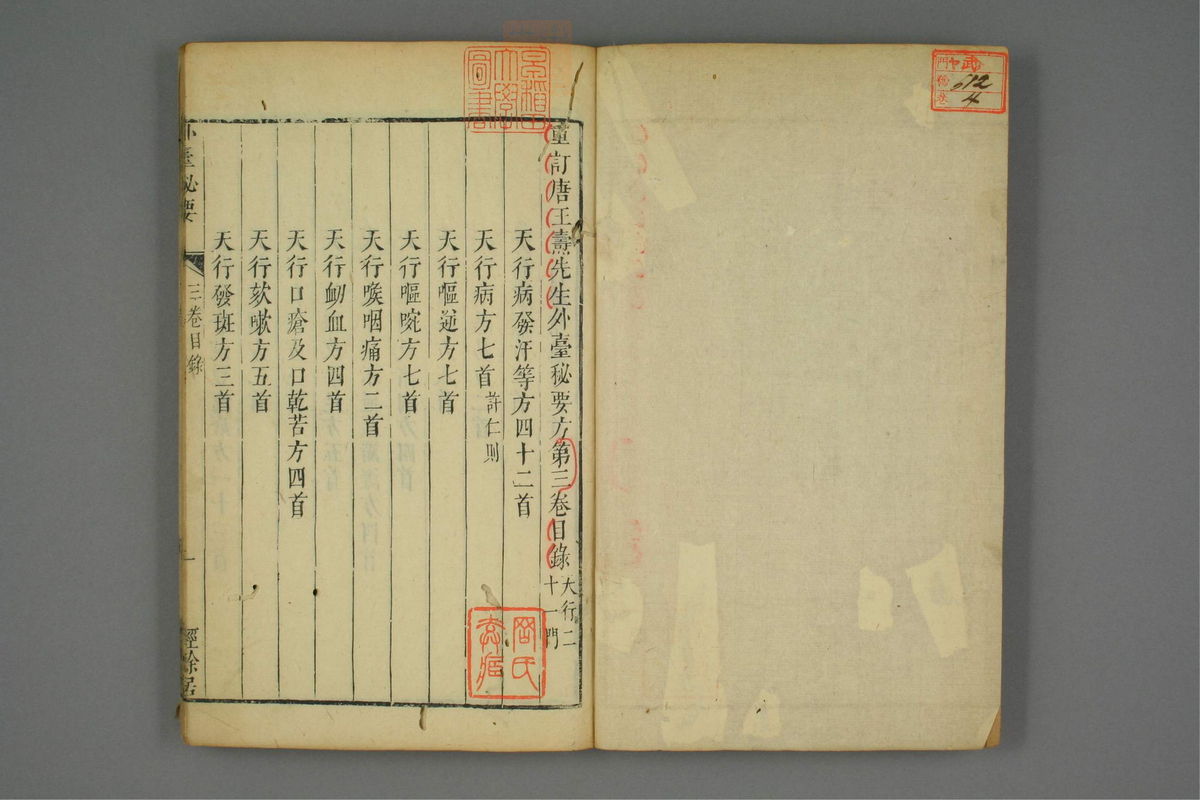 重訂唐王燾先生外臺秘要方第三卷目錄 天行二十一門
天行病發汗等方四十二首
天行病方七首 許仁則
天行嘔逆方七首
天行嘔啘方七首
天行喉咽痛方二首
天行衂血方四首
天行口瘡及口乾苦方四首
天行欬嗽方五首
天行發斑方三首
外臺秘要 三卷目錄 一 經餘居
早稲田大學圖書
門
號 612
卷 4